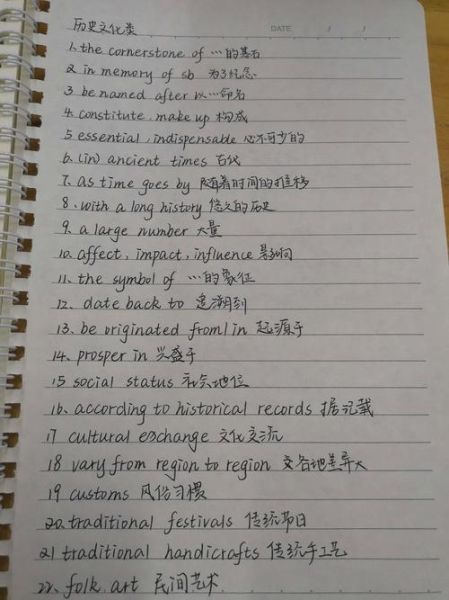 历史文化类 DATE / /
1. the cornerstone of …的基石
2. in memory of sb 为了纪念
3. be named after 以…命名
4. constitute, make up 构成
5. essential, indispensable 必不可少的
6. (in) ancient times 古代
7. as time goes by 随着时间的推移
8. with a long history 悠久的历史
9. a large number 大量
10. affect, impact, influence 影响
11. the symbol of …的象征
12. date back to 追溯到
13. be originated from/in 起源于
14. prosper in 兴盛于
15 social status 社会地位
16. according to historical records 据记载
17 cultural exchange 文化交流
18 vary from region to region 各地差异大
19 customs 风俗习惯
20. traditional festivals 传统节日
21 traditional handicrafts 传统手工艺
22. folk art 民间艺术